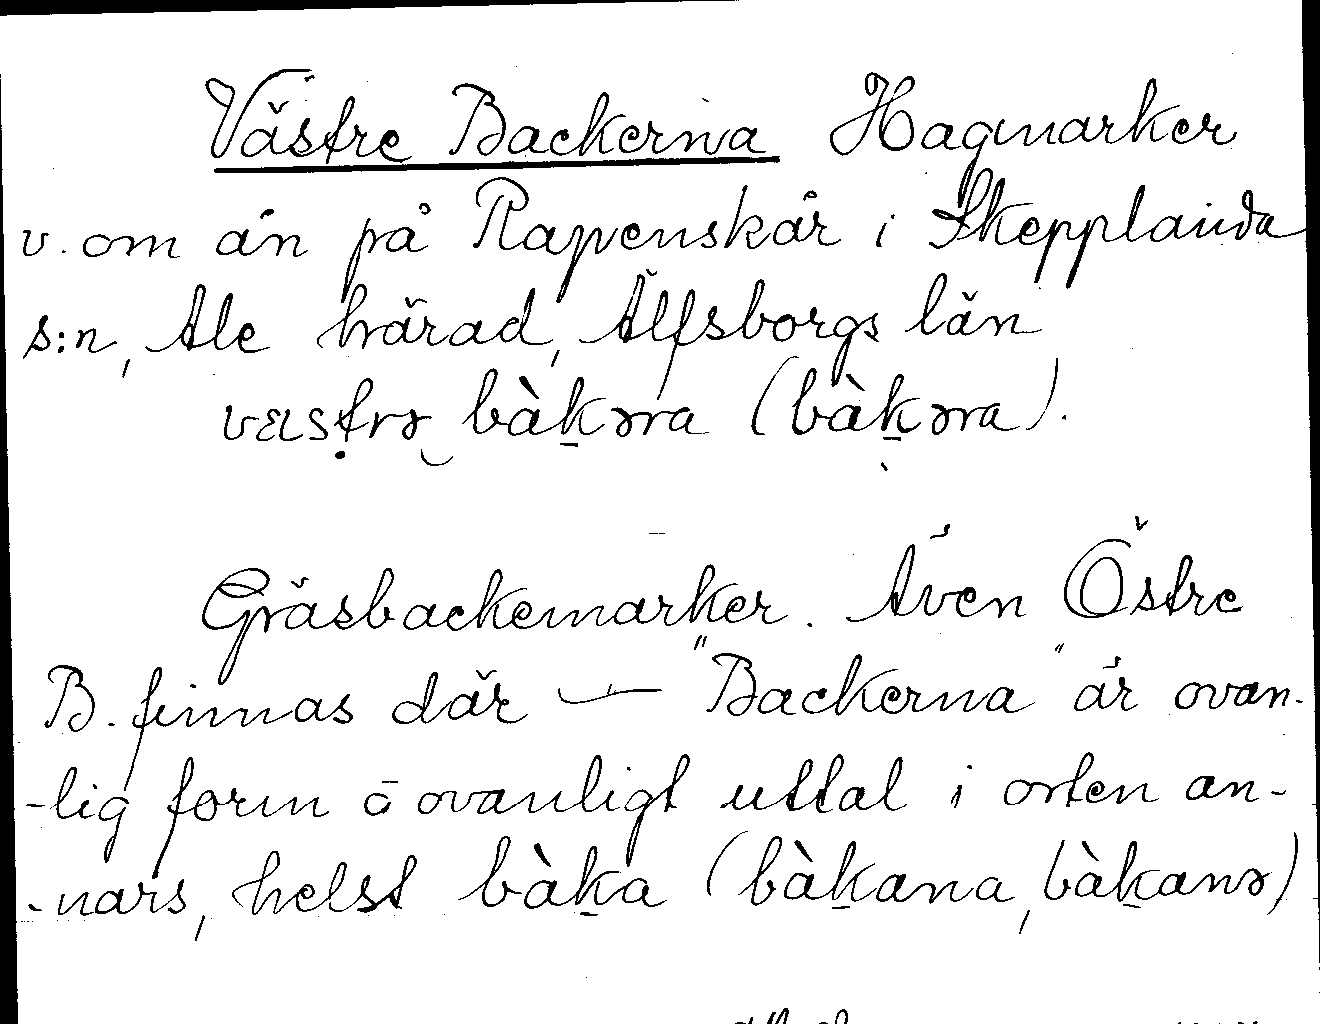 Västre Backerna Hagmarker
v. om ån på Rapenskår i Skepplanda
s:n, Ale härad, Älfsborgs län
væstrə bàka̱rna (bàḵərna).
Gräsbackemarker. Även Östre
B. finnas där — "Backerna" är ovan-
-lig form å ovanligt uttal i orten an-
-nars, helst bàḵa (bàḵana, bàḵanə)